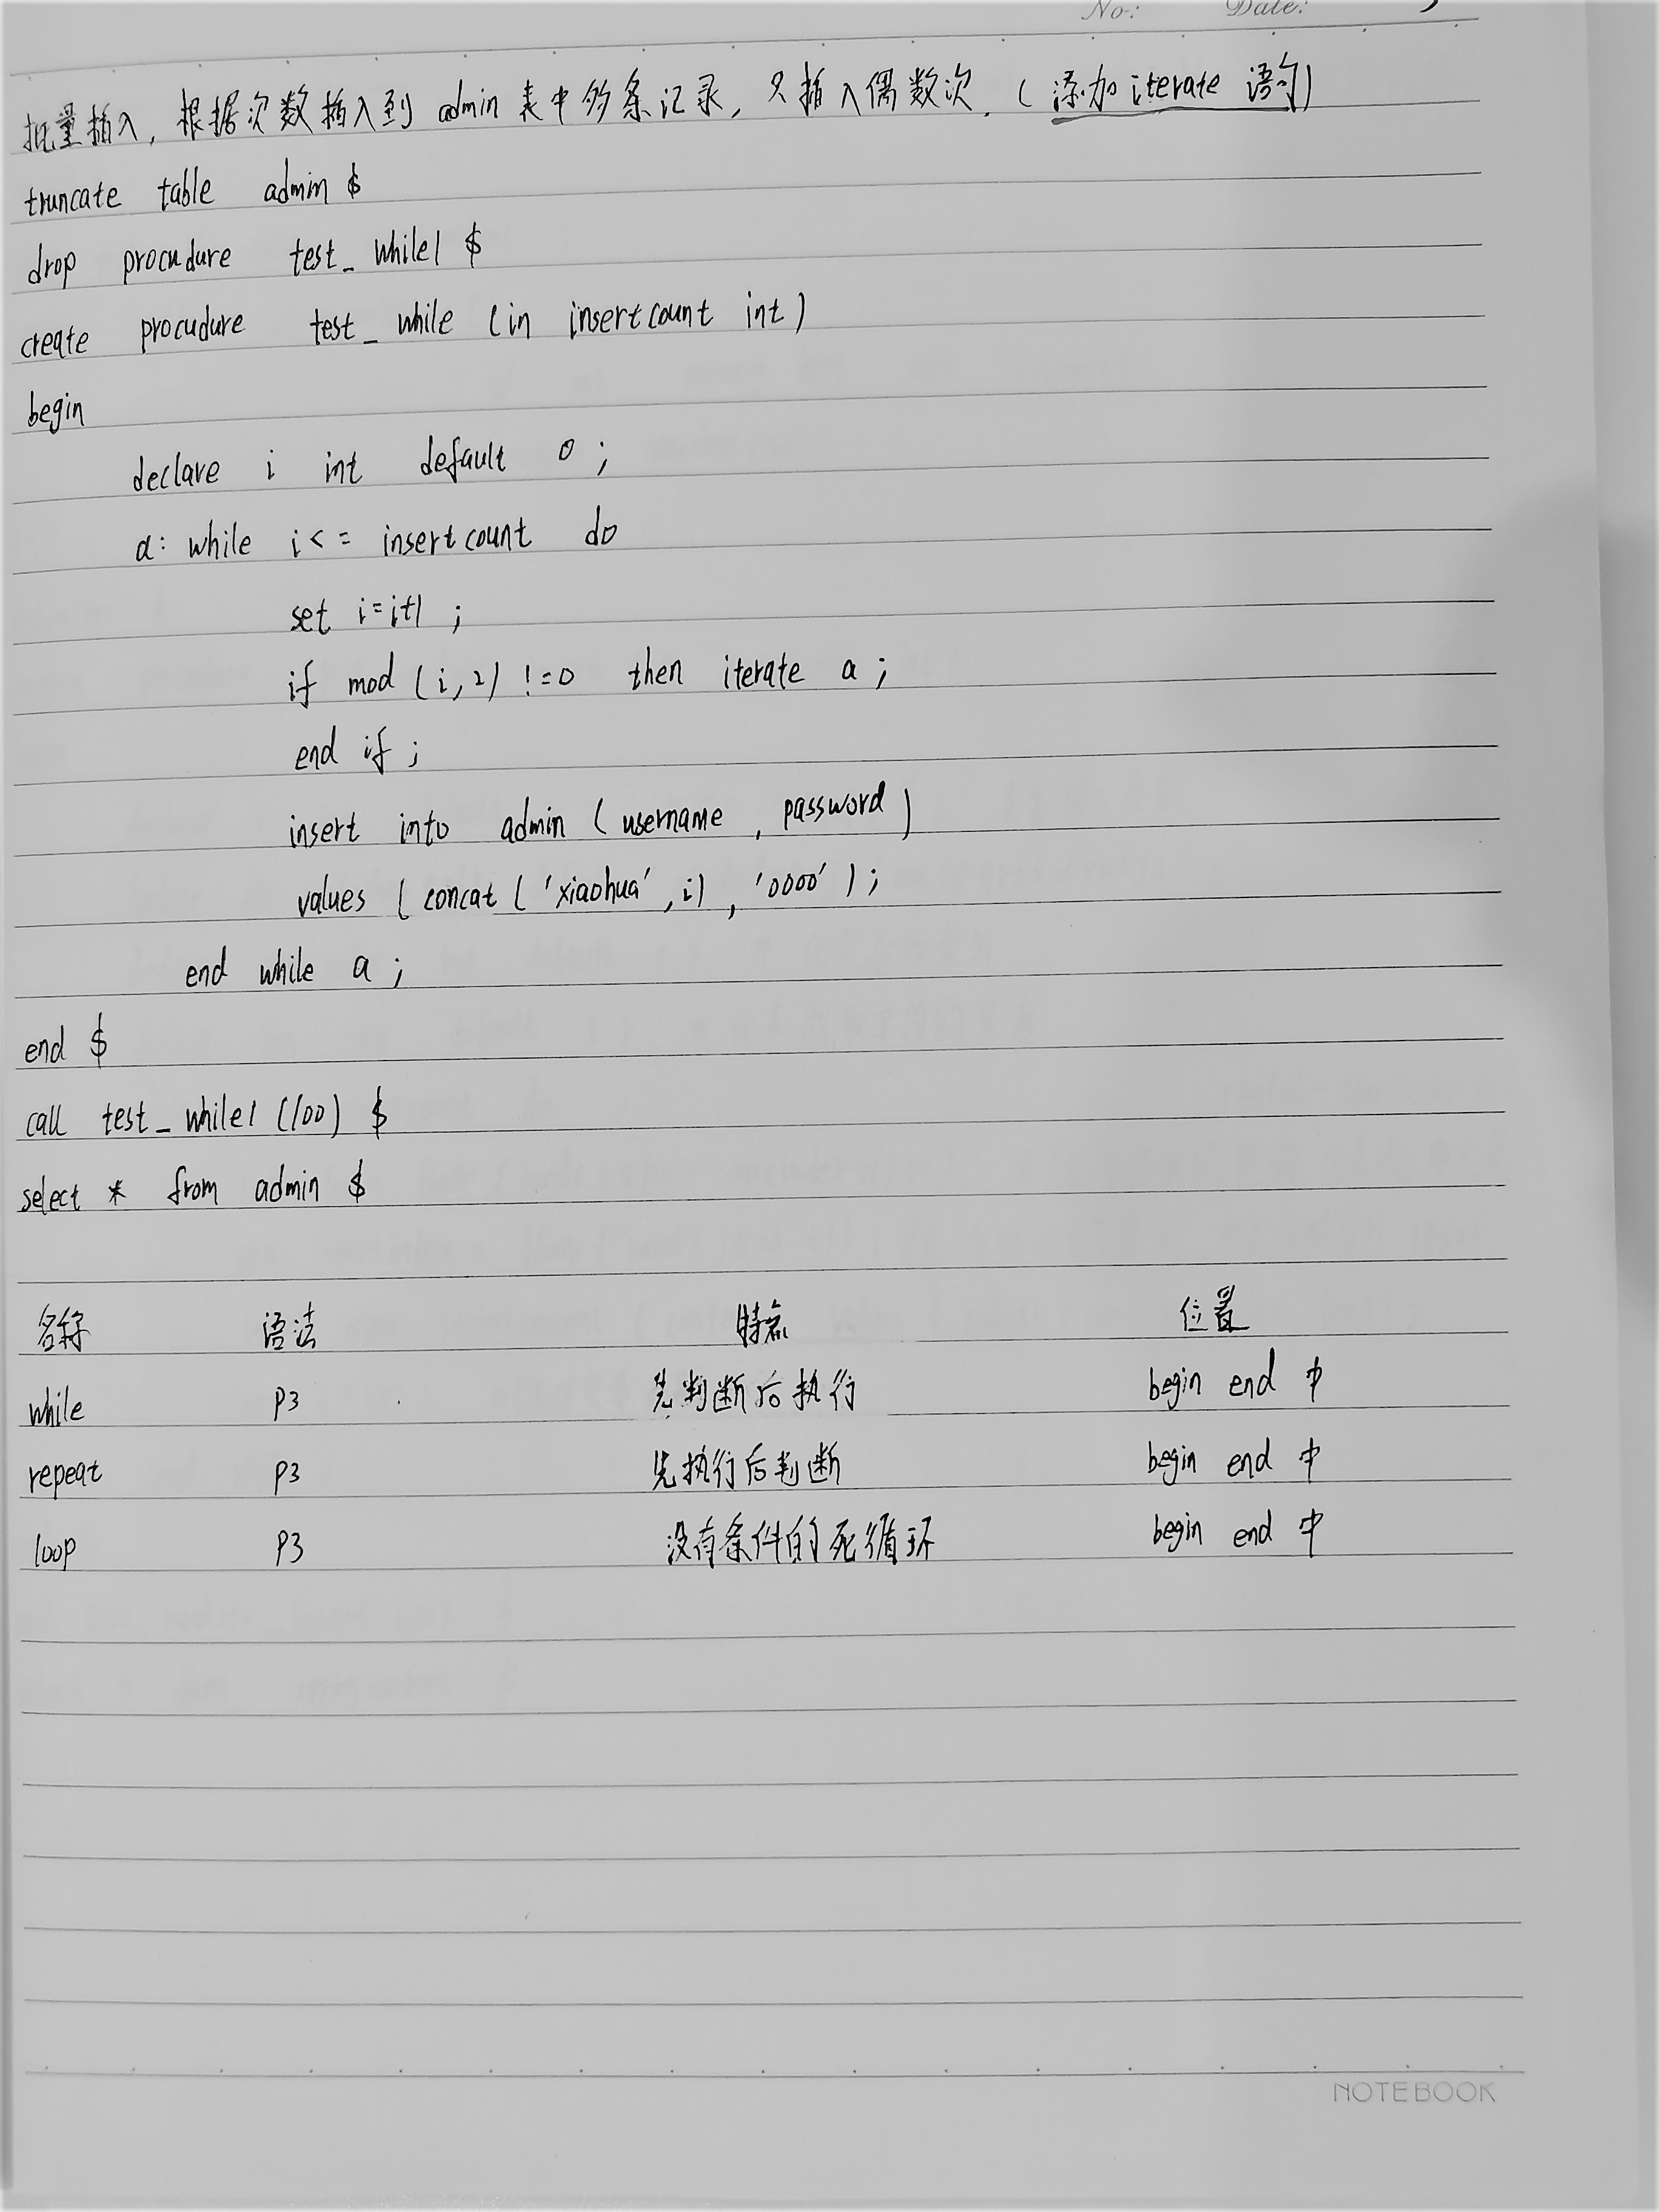 No: Date:
批量插入, 根据次数插入到 admin 表中多条记录, 只插入偶数次. (添加iterate 语句)
truncate table admin $
drop procudure test_while1 $
create procudure test_while (in insertcount int)
begin
declare i int default 0;
a: while i<= insertcount do
set i=i+1;
if mod (i,2) !=0 then iterate a;
end if;
insert into admin (username, password)
values (concat ('xiaohua',i), '0000');
end while a;
end $
call test_while1 (100) $
select * from admin $
名称 语法 特点 位置
while P3 先判断后执行 begin end 中
repeat P3 先执行后判断 begin end 中
loop P3 没有条件的死循环 begin end 中
NOTEBOOK